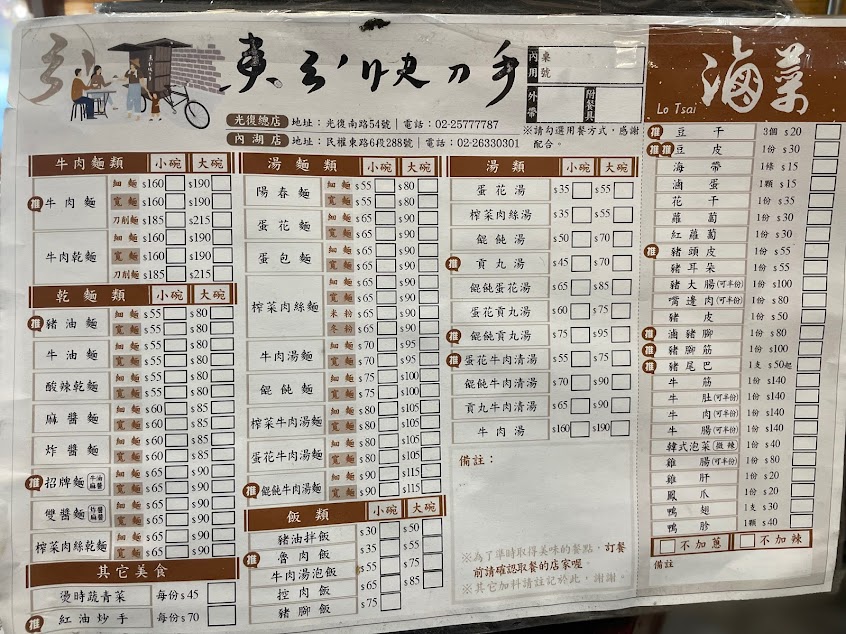 東引快刀手
內用 桌號
外帶 附餐具
光復總店 地址：光復南路54號｜電話：02-25777787
內湖店 地址：民權東路6段288號｜電話：02-26330301
※請勾選用餐方式，感謝配合。
牛肉麵類 小碗 大碗
推 牛肉麵 細麵 $160 $190
寬麵 $160 $190
刀削麵 $185 $215
牛肉乾麵 細麵 $160 $190
寬麵 $160 $190
刀削麵 $185 $215
乾麵類 小碗 大碗
推 豬油麵 細麵 $55 $80
寬麵 $55 $80
牛油麵 細麵 $55 $80
寬麵 $55 $80
酸辣乾麵 細麵 $55 $80
寬麵 $55 $80
麻醬麵 細麵 $60 $85
寬麵 $60 $85
炸醬麵 細麵 $60 $85
寬麵 $60 $85
推 招牌麵 牛油麻醬 細麵 $65 $90
寬麵 $65 $90
雙醬麵 炸醬麻醬 細麵 $65 $90
寬麵 $65 $90
榨菜肉絲乾麵 細麵 $65 $90
寬麵 $65 $90
其它美食
燙時蔬青菜 每份$45
推 紅油炒手 每份$70
湯麵類 小碗 大碗
陽春麵 細麵 $55 $80
寬麵 $55 $80
蛋花麵 細麵 $65 $90
寬麵 $65 $90
蛋包麵 細麵 $65 $90
寬麵 $65 $90
榨菜肉絲麵 細麵 $65 $90
寬麵 $65 $90
米粉 $65 $90
冬粉 $65 $90
牛肉湯麵 細麵 $70 $95
寬麵 $70 $95
餛飩麵 細麵 $75 $100
寬麵 $75 $100
榨菜牛肉湯麵 細麵 $80 $105
寬麵 $80 $105
蛋花牛肉湯麵 細麵 $80 $105
寬麵 $80 $105
推 餛飩牛肉湯麵 細麵 $90 $115
寬麵 $90 $115
飯類 小碗 大碗
豬油拌飯 $30 $50
推 魯肉飯 $35 $55
牛肉湯泡飯 $55 $85
控肉飯 $65
豬腳飯 $75
湯類 小碗 大碗
蛋花湯 $35 $55
榨菜肉絲湯 $35 $55
餛飩湯 $50 $70
推 貢丸湯 $45 $70
餛飩蛋花湯 $65 $85
蛋花貢丸湯 $60 $75
推 餛飩貢丸湯 $75 $95
推 蛋花牛肉清湯 $55 $75
餛飩牛肉清湯 $70 $90
貢丸牛肉清湯 $65 $90
牛肉湯 $160 $190
備註：
※為了準時取得美味的餐點，訂餐前請確認取餐的店家喔。
※其它加料請註記於此，謝謝。
滷菜
Lo Tsai
推 豆干 3個 $20
推 推 豆皮 1份 $30
海帶 1條 $15
滷蛋 1顆 $15
花干 1份 $35
蘿蔔 1份 $30
紅蘿蔔 1份 $30
推 豬頭皮 1份 $55
豬耳朵 1份 $55
豬大腸(可半份) 1份 $100
嘴邊肉(可半份) 1份 $80
豬皮 1份 $50
推 滷豬腳 1份 $80
推 豬腳筋 1份 $100
推 豬尾巴 1支 $50起
牛筋 1份 $140
牛肚(可半份) 1份 $140
牛肉(可半份) 1份 $140
牛腸(可半份) 1份 $140
韓式泡菜(微辣) 1份 $40
雞腸(可半份) 1份 $80
雞肝 1份 $20
鳳爪 1份 $20
鴨翅 1支 $30
鴨胗 1顆 $40
不加蔥 不加辣
備註